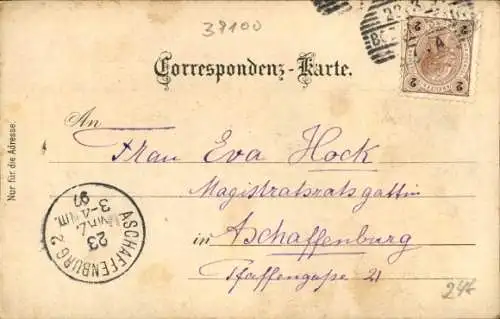 37100
Correspondenz-Karte.
An
Frau Eva Hock
Magistratsratsgattin
in Aschaffenburg
Pfaffengasse 21
Nur für die Adresse.
ASCHAFFENBURG 2
23
3-4 Nm.
97
2 2
2 2
24€